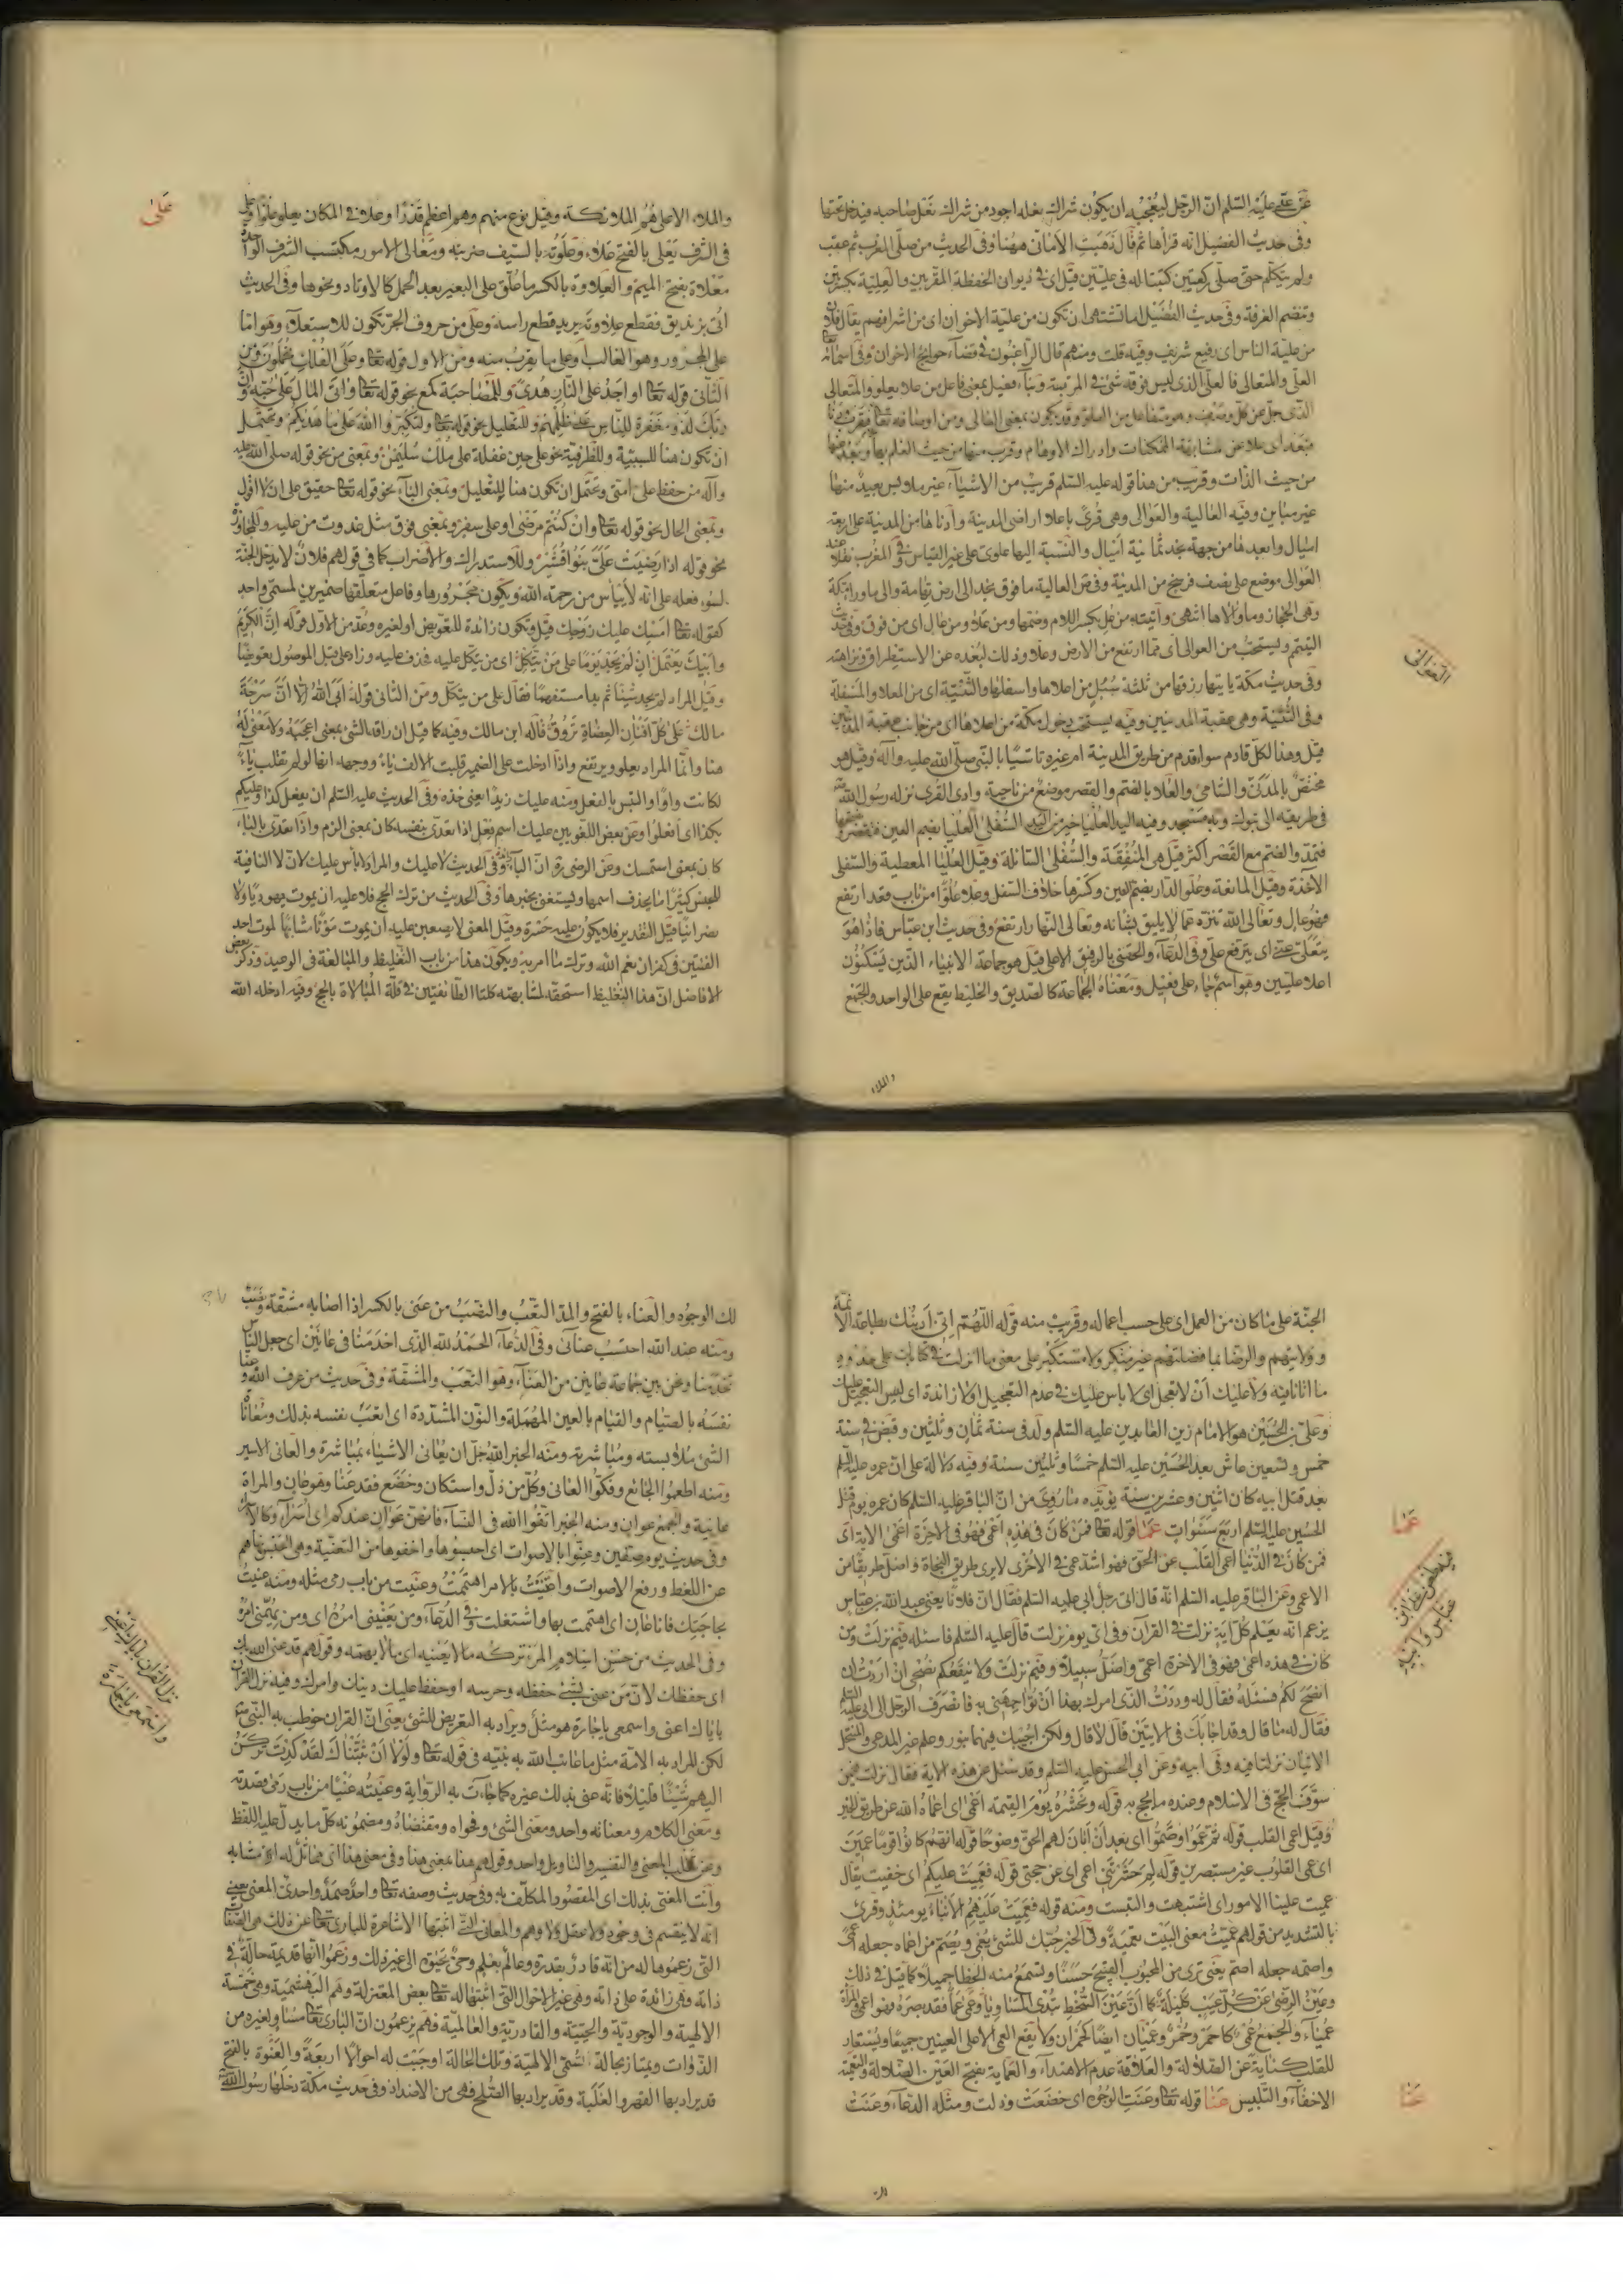 عن علي عليه السلم ان الرجل ليعجبه ان يكون شراك نعله اجود من شراك نعل صاحبه فيدخل تحتها
وفى حديث الفضيل انه قرأها ثم قال ذهبت الامانى ههنا وفى الحديث من صلى المغرب ثم عقب
ولم يتكلم حتى صلى ركعتين كتبتا له فى عليين قيل اى فى ديوان الحفظة المقربين والعلية بكسرتين
وتضم الغرفة وفى حديث الفضيل اما تشتهى ان تكون من علية الاخوان اى من اشرافهم يقال فلان
من علية الناس اى رفيع شريف وفيه قلت ومنهم قال الراغبون فى قضاء حوائج الاخوان وفى اسمائه
العلى والمتعالى فالعلى الذى ليس فوقه شئ فى المرتبة وبناء فعيل بمعنى فاعل من علا يعلو والمتعالى
الذى جل عن كل وصف وهو متفاعل من العلو وقد يكون بمعنى العالى ومن اوصافه تعالى
من حيث الذات وقريب من هذا قوله عليه السلم قريب من الاشياء غير ملابس بعيد منها
غير مباين وفيه العالية والعوالى وهى قرى باعلا اراضى المدينة وادناها من المدينة على اربعة
اميال وابعدها من جهة نجد ثمانية اميال والنسبة اليها علوى على غير القياس وفى المغرب نقلا عنه
العوالى موضع على نصف فرسخ من المدينة وفى ص العالية ما فوق نجد الى ارض تهامة والى ما وراء مكة
وهى الحجاز وما والاها انتهى واتيته من عل بكسر اللام وضمها ومن علا ومن عال اى من فوق وفى حديث
التيمم ويستحب من العوالى اى مما ارتفع من الارض وعلا وذلك لبعده عن الاستطراق ونزاهته
وفى حديث مكة يأتيها رزقها من ثلثة سبل من اعلاها واسفلها والثنية اى من المعلا والمسفلة
وفى الثنية وهى عقبة المدنيين وفيه يستحب دخول مكة من اعلاها اى من جانب عقبة المدنيين
قيل وهذا لكل قادم سواء قدم من طريق المدينة ام غيره تاسيا بالنبى صلى الله عليه وآله وقيل هو
مختص بالمدنى والشامى والعلا بالضم والقصر موضع من ناحية وادى القرى نزله رسول الله
فى طريقه الى تبوك وبه مسجد وفيه اليد العليا خير من اليد السفلى العليا بضم العين فتقصر وبفتحها
فتمد والضم مع القصر اكثر قيل هى المنفقة والسفلى السائلة وقيل العليا المعطية والسفلى
الآخذة وقيل المانعة وعلو الدار بضم العين وكسرها خلاف السفل وعلا علوا من باب قعد ارتفع
فهو عال وتعالى الله تنزه عما لا يليق بشانه وتعالى النهار ارتفع وفى حديث ابن عباس فاذا هو
يتعلى عنى اى يترفع على وفى الدعاء والحقنى بالرفيق الاعلى قيل هو جماعة الانبياء الذين يسكنون
اعلا عليين وهو اسم جاء على فعيل ومعناه الجماعة كالصديق والخليط يقع على الواحد والجمع
والملاء
العوالى
على
والملاء الاعلى هم الملائكة وقيل نوع منهم وهم اعظم قدرا وعلا فى المكان يعلو علوا وعلى
فى الشرف يعلى بالفتح علاء وعلوته بالسيف ضربته ومعالى الامور مكتسب الشرف الواحدة
معلاة بفتح الميم والعلاوة بالكسر ما علق على البعير بعد الحمل كالاوتاد ونحوها وفى الحديث
اتى بزنديق فقطع علاوته يريد قطع راسه وعلى من حروف الجر تكون للاستعلاء وهو اما
على المجرور وهو الغالب او على ما يقرب منه ومن الاول قوله تعالى وعلى الفلك تحملون ومن
الثانى قوله تعالى او اجد على النار هدى وللمصاحبة كمع نحو قوله تعالى واتى المال على حبه وان
ربك لذو مغفرة للناس على ظلمهم وللتعليل نحو قوله تعالى ولتكبروا الله على ما هديكم ويحتمل
ان تكون هنا للسببية وللظرفية نحو على حين غفلة على ملك سليمن وبمعنى من نحو قوله صلى الله عليه
وآله من حفظ على امتى ويحتمل ان تكون هنا للتعليل وبمعنى الباء نحو قوله تعالى حقيق على ان لا اقول
وبمعنى الحال نحو قوله تعالى وان كنتم مرضى او على سفر وبمعنى فوق مثل غدوت من عليه وللمجاوزة
نحو قوله اذا رضيت على بنو قشير وللاستدراك والاضراب كما فى قولهم فلان لا يدخل الجنة
لسوء فعله على انه لا ييأس من رحمة الله ويكون مجرورها وفاعل متعلقها ضميرين لمسمى واحد
كقوله تعالى امسك عليك زوجك قيل وتكون زائدة للتعويض او لغيره وعد من الاول قوله ان الكريم
وابيك يعتمل ان لم يجد يوما على من يتكل اى من يتكل عليه فحذف عليه وزاد على قبل الموصول تعويضا
وقيل المراد لم يجد شيئا ثم بدا مستفهما فقال على من يتكل ومن الثانى قوله ابى الله الا ان سرحة
مالك على كل افنان العضاة تروق قاله ابن مالك وفيه كما قيل ان راقه الشئ بمعنى اعجبه ولا معنى له
هنا وانما المراد يعلو ويرتفع واذا ادخلت على الضمير قلبت الالف ياء ووجهه انها لو لم تقلب ياء
لكانت واوا والتبس بالفعل ومنه عليك زيدا يعنى خذه وفى الحديث عليه السلم ان يفعل كذا وعليكم
بكذا اى افعلوا وعن بعض اللغويين عليك اسم فعل اذا تعدى بنفسه كان بمعنى الزم واذا تعدى بالباء
كان بمعنى استمسك وعن الرضى ره ان الباء وفى الحديث لا عليك والمراد لا باس عليك لان لا النافية
للجنس كثيرا ما يحذف اسمها ويستغنى بخبرها وفى الحديث من ترك الحج فلا عليه ان يموت يهوديا ولا
نصرانيا قيل التقدير فلا يكون عليه حسرة وقيل المعنى لا يصعبن عليه ان يموت موتا مشابها لموت احد
الفئتين فى كفران نعم الله وترك ما امر به ويكون هذا من باب التغليظ والمبالغة فى الوعيد وذكر بعض
الافاضل ان هذا التغليظ استحقه لمشابهته كلتا الطائفتين فى قلة المبالاة بالحج وفيه ادخله الله
الجنة على ما كان من العمل اى على حسب اعماله وقريب منه قوله اللهم انى ادينك بطاعة الائمة
وولايتهم والرضا بما فضلتهم غير متكبر ولا مستكبر على معنى ما انزلت فى كتابك على حدود
ما اتانا فيه ولا عليك ان لا تعجل اى لا باس عليك فى عدم التعجيل او لا زائدة اى ليس التعجيل عليك
وعلى بن الحسين هو الامام زين العابدين عليه السلم ولد فى سنة ثمان وثلثين وقبض فى سنة
خمس وتسعين عاش بعد الحسين عليه السلم خمسا وثلثين سنة وفيه دلالة على ان عمره عليه السلم
بعد قتل ابيه كان اثنين وعشرين سنة يؤيده ما روى من ان الباقر عليه السلم كان عمره يوم قتل
الحسين عليه السلم اربع سنوات عما قوله تعالى فمن كان فى هذه اعمى فهو فى الاخرة اعمى الاية اى
فمن كان فى الدنيا اعمى القلب عن الحق فهو اشد عمى فى الاخرى لا يرى طريق النجاة واضل طريقا من
الاعمى وعن الباقر عليه السلم انه قال اتى رجل ابى عليه السلم فقال ان فلانا يعنى عبد الله بن عباس
يزعم انه يعلم كل اية نزلت فى القرآن وفى اى يوم نزلت قال عليه السلم فاسئله فيمن نزلت ومن
كان فى هذه اعمى فهو فى الاخرة اعمى واضل سبيلا وفيم نزلت ولا ينفعكم نصحى ان اردت ان
انصح لكم فسئله فقال له وددت الذى امرك بهذا ان تواجهنى به فانصرف الرجل الى ابى عليه السلم
فقال له ما قال وقد اجابك فى الايتين قال لا قال ولكن اجيبك فيهما بنور وعلم غير المدعى والمنتحل
الايتان نزلتا فيه وفى ابيه وعن ابى الحسن عليه السلم وقد سئل عن هذه الاية فقال نزلت فيمن
سوف الحج فى الاسلام وعنده ما يحج به قوله ونحشره يوم القيمة اعمى اى اعماه الله عن طريق الخير
وقيل اعمى القلب قوله ثم عموا وصموا اى بعد ان ابان لهم الحق وضوحا قوله انهم كانوا قوما عمين
اى عمى القلوب غير مستبصرين قوله لم حشرتنى اعمى اى عن حجتى قوله فعميت عليكم اى خفيت يقال
عميت علينا الامور اى اشتبهت والتبست ومنه قوله فعميت عليهم الانباء يومئذ وقرئ
بالتشديد من قولهم عميت معنى البيت تعمية وفى الخبر حبك للشئ يعمى ويصم من اعماه جعله اعمى
واصمه جعله اصم يعنى ترى من المحبوب القبيح حسنا وتسمع منه الخطا جميلا كما قيل فى ذلك
وعين الرضى عن كل عيب كليلة كما ان عين السخط تبدى المساويا وعمى عمى فقد بصره فهو اعمى والمرأة
عمياء والجمع عمى كاحمر وحمر وعميان ايضا كحمران ولا يقع العمى الا على العينين جميعا ويستعار
للقلب كناية عن الضلالة والعلاقة عدم الاهتداء والعماية بفتح العين الضلالة والتعمية
الاخفاء والتلبيس عنا قوله تعالى وعنت الوجوه اى خضعت وذلت ومثله الدعاء وعنت
عما
عباس وابيه
عنا
لك الوجوه والعناء بالفتح والمد التعب والنصب من عنى بالكسر اذا اصابه مشقة ونصب
ومنه عند الله احتسب عنائى وفى الدعاء الحمد لله الذى اخدمنا فى عانين اى جعل الناس
تخدمنا ونحن بين جماعة عانين من العناء وهو التعب والمشقة وفى حديث من عرف الله وعنا
نفسه بالصيام والقيام بالعين المهملة والنون المشددة اى اتعب نفسه بذلك ومعاناة
الشئ ملابسته ومباشرته ومنه الخبر الله جل ان يعانى الاشياء بمباشرة والعانى الاسير
ومنه اطعموا الجائع وفكوا العانى وكل من ذل واستكان وخضع فقد عنا وهو عان والمراة
عانية والجمع عوان ومنه الخبر اتقوا الله فى النساء فانهن عوان عندكم اى اسراء
وفى حديث يوم صفين وعنوا بالاصوات اى احبسوها واخفوها من التعنية وهى الحبس
عن اللغط ورفع الاصوات واعتنيت بالامر اهتممت وعنيت من باب رمى مثله ومنه عنيت
بحاجتك فانا عان اى اهتممت بها واشتغلت فى الدعاء ومن يعنينى امره اى ومن يهمنى امره
وفى الحديث من حسن اسلام المرء تركه ما لا يعنيه اى ما لا يهمه وقولهم قد عنى الله بك
اى حفظك لان من عنى بشئ حفظه وحرسه او حفظ عليك دينك وامرك وفيه نزل القرآن
باياك اعنى واسمعى يا جارة هو مثل ويراد به التعريض للشئ يعنى ان القرآن خوطب به النبى
لكن المراد به الامة مثل ما عاتب الله به نبيه فى قوله تعالى ولولا ان ثبتناك لقد كدت تركن
اليهم شيئا قليلا فانه عنى بذلك غيره كما جاءت به الرواية وعنيته عنيا من باب رمى قصدته
ومعنى الكلام ومعناته واحد ومعنى الشئ وفحواه ومقتضاه ومضمونه كل ما يدل عليه اللفظ
وعن ثعلب المعنى والتفسير والتاويل واحد وقولهم هذا بمعنى هذا وفى معنى هذا اى مماثل له او مشابه
وانت المعنى بذلك اى المقصود المكلف به وفى حديث وصفه تعالى واحد صمد واحدى المعنى يعنى
انه لا ينقسم فى وجود ولا عقل ولا وهم والمعانى التى اثبتها الاشاعرة للبارى تعالى عن ذلك هى الصفات
التى زعموها له من انه قادر بقدرة وعالم بعلم وحى بحيوة الى غير ذلك وزعموا انها قديمة حالة فى
ذاته وهى زائدة على ذاته وهى غير الاحوال التى اثبتها له تعالى بعض المعتزلة وهم البهشمية وهى خمسة
الالهية والوجودية والحيية والقادرية والعالمية فهم يزعمون ان البارى تعالى مساو لغيره من
الذوات ويمتاز بحالة تسمى الالهية وتلك الحالة اوجبت له احوالا اربعة والعنوة بالفتح
قد يراد بها القهر والغلبة وقد يراد بها الصلح فهى من الاضداد وفى حديث مكة دخلها رسول الله
نزل القرآن باياك اعنى
واسمعى يا جارة